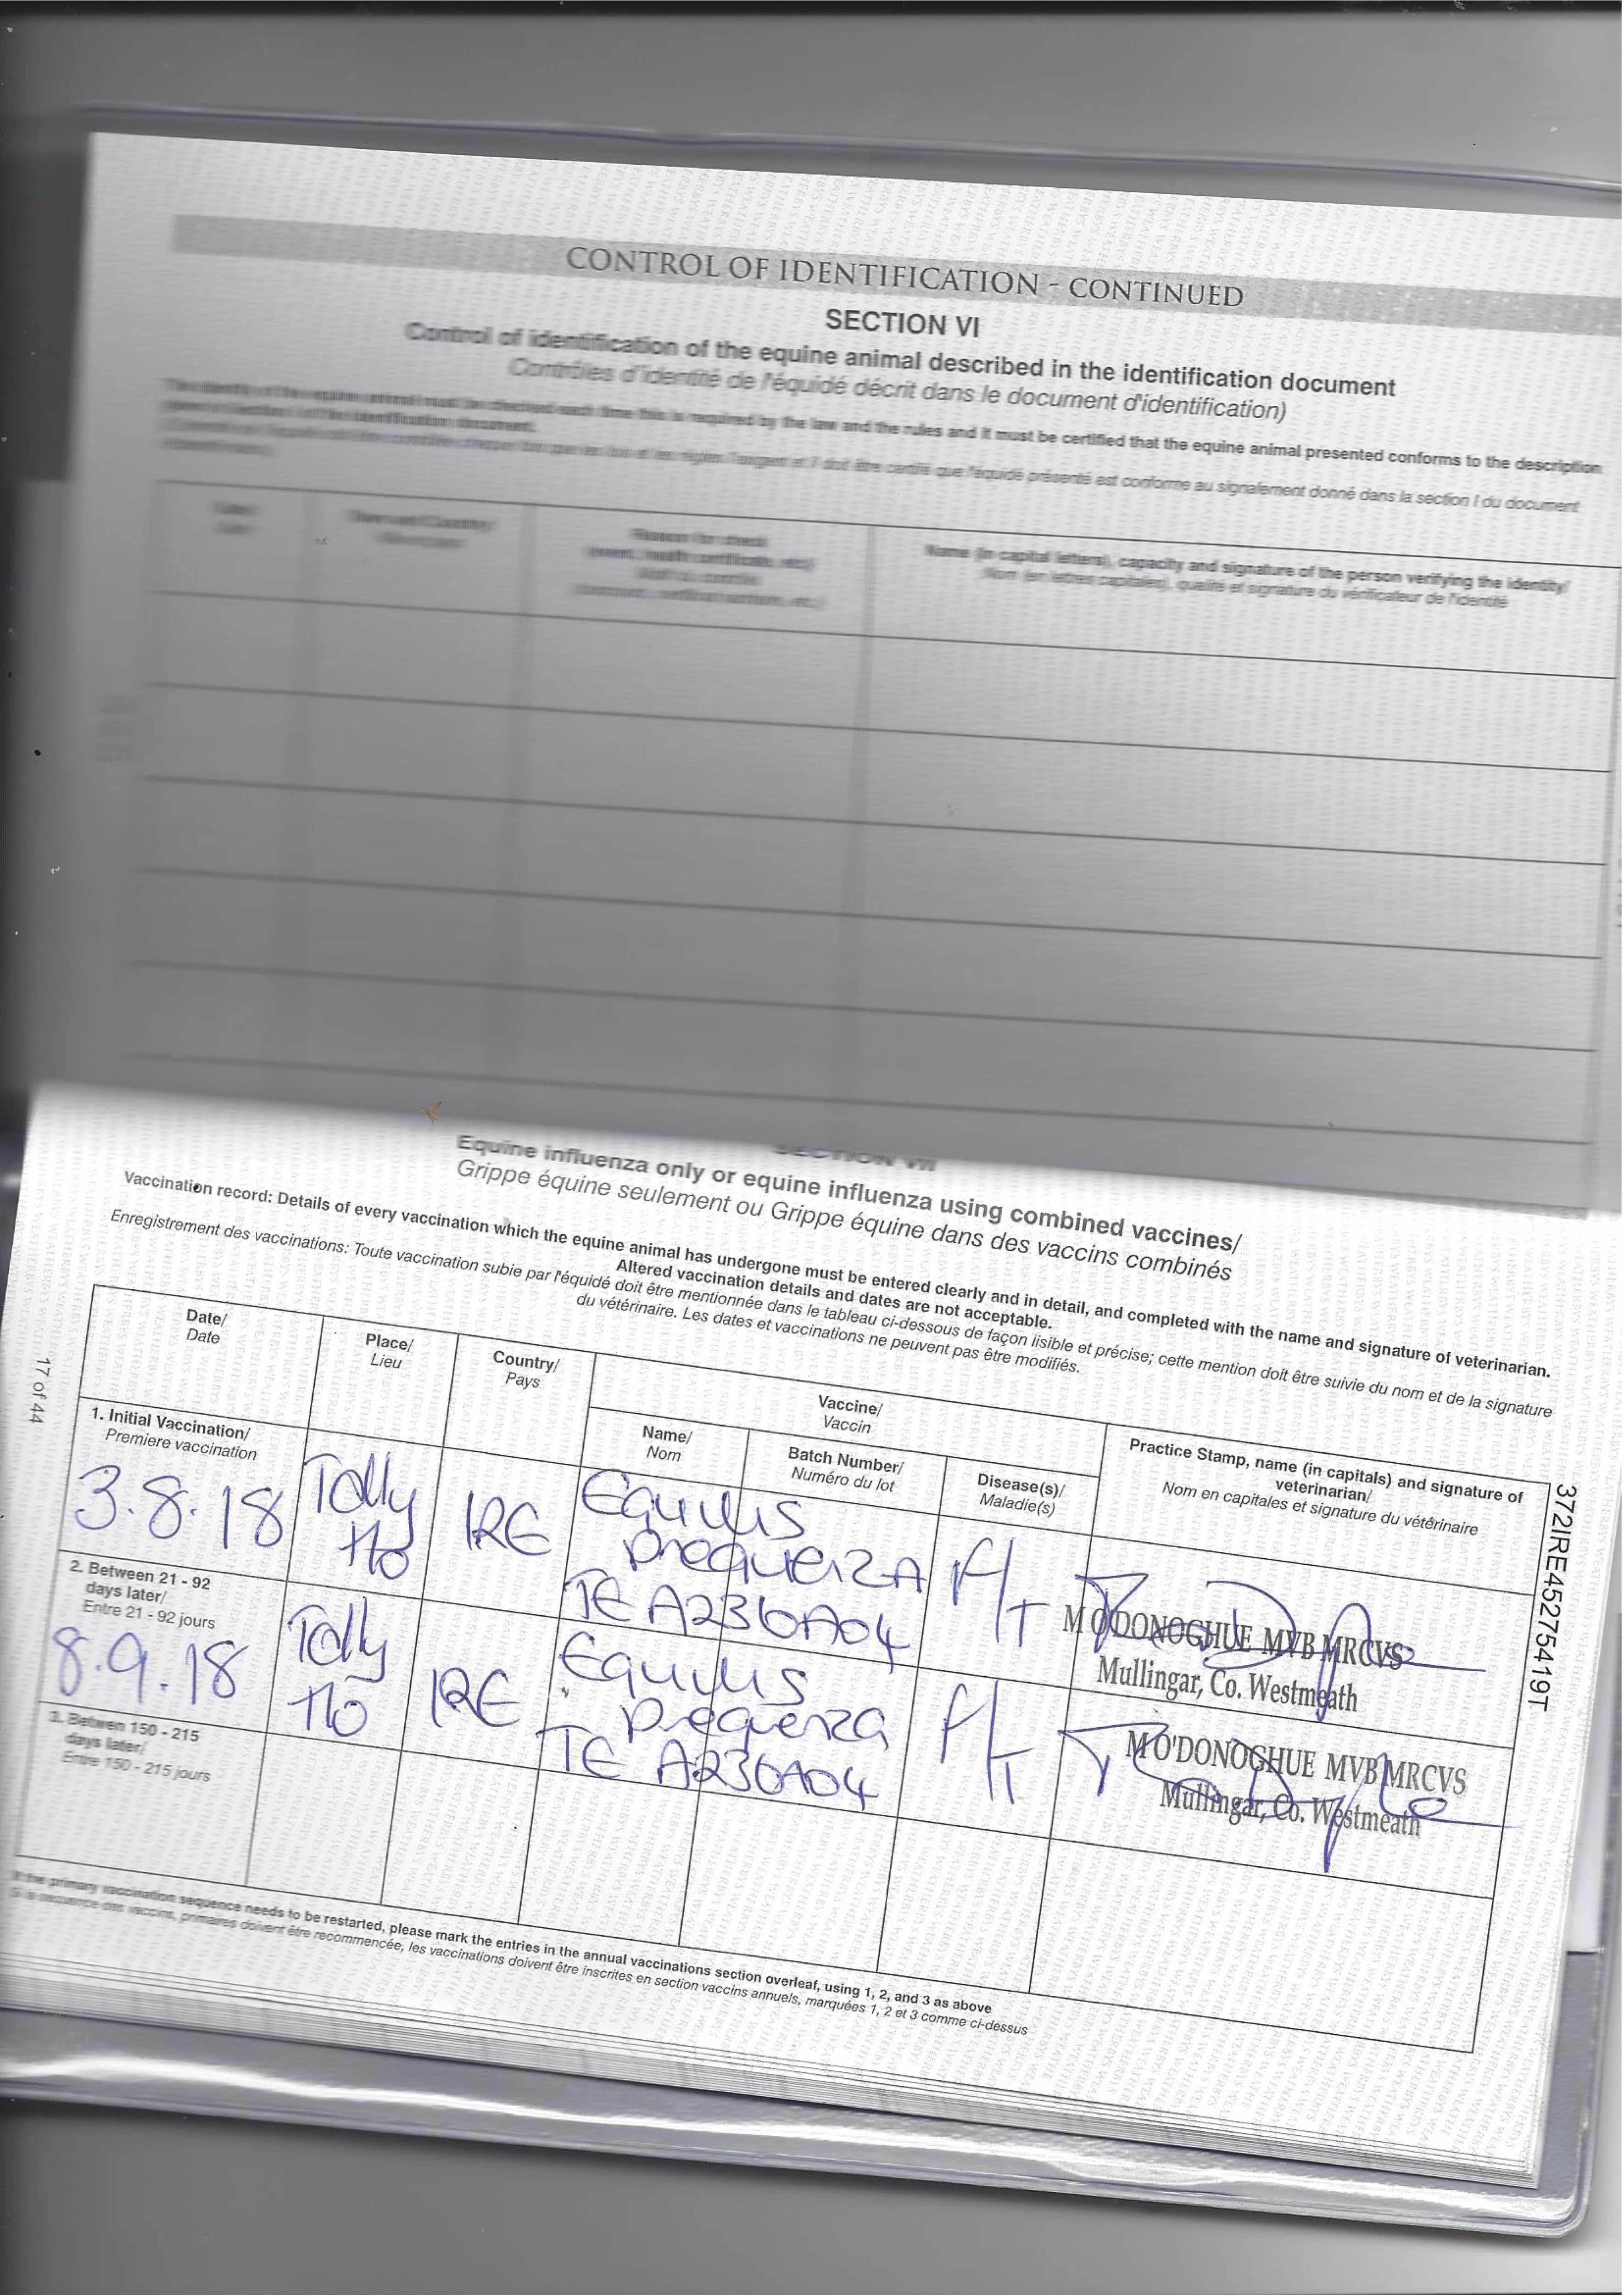 CONTROL OF IDENTIFICATION - CONTINUED
SECTION VI
Control of identification of the equine animal described in the identification document
Contrôles d'identité de l'équidé décrit dans le document d'identification)
The identity of the equine animal must be checked each time this is required by the law and the rules and it must be certified that the equine animal presented conforms to the description
given in Section I of the identification document.
que les lois et les règles l'exigent et il doit être certifié que l'équidé présenté est conforme au signalement donné dans la section I du document
Reason for check
(event, health certificate, etc)
Name (in capital letters), capacity and signature of the person verifying the identity/
Nom (en lettres capitales), qualité et signature du vérificateur de l'identité
SECTION VII
Equine influenza only or equine influenza using combined vaccines/
Grippe équine seulement ou Grippe équine dans des vaccins combinés
Vaccination record: Details of every vaccination which the equine animal has undergone must be entered clearly and in detail, and completed with the name and signature of veterinarian.
Altered vaccination details and dates are not acceptable.
Enregistrement des vaccinations: Toute vaccination subie par l'équidé doit être mentionnée dans le tableau ci-dessous de façon lisible et précise; cette mention doit être suivie du nom et de la signature
du vétérinaire. Les dates et vaccinations ne peuvent pas être modifiés.
Date/
Date
Place/
Lieu
Country/
Pays
Vaccine/
Vaccin
Name/
Nom
Batch Number/
Numéro du lot
Disease(s)/
Maladie(s)
Practice Stamp, name (in capitals) and signature of
veterinarian/
Nom en capitales et signature du vétêrinaire
1. Initial Vaccination/
Premiere vaccination
3.8.18
Tally
Ho
IRE
Equilis
Prequenza
TE A236A04
F/T
M O'DONOGHUE MVB MRCVS
Mullingar, Co. Westmeath
2. Between 21 - 92
days later/
Entre 21 - 92 jours
8.9.18
Tally
Ho
IRE
Equilis
Prequenza
TE A236A04
F/T
M O'DONOGHUE MVB MRCVS
Mullingar, Co. Westmeath
3. Betwen 150 - 215
days later/
Entre 150 - 215 jours
If the primary vaccination sequence needs to be restarted, please mark the entries in the annual vaccinations section overleaf, using 1, 2, and 3 as above
Si la sequence des vaccins, primaires doivent être recommencée, les vaccinations doivent être inscrites en section vaccins annuels, marquées 1, 2 et 3 comme ci-dessus
17 of 44
372IRE45275419T